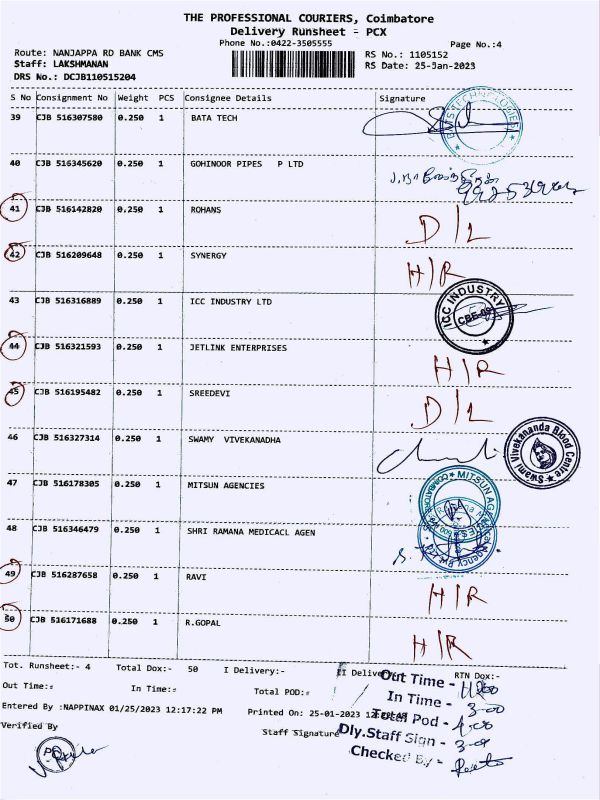 THE PROFESSIONAL COURIERS, Coimbatore
Delivery Runsheet - PCX
Phone No.:0422-3505555
Page No.:4
Route: NANJAPPA RD BANK CMS
RS No.: 1105152
Staff: LAKSHMANAN
RS Date: 25-Jan-2023
DRS No.: DCJB110515204
S No Consignment No Weight PCS Consignee Details Signature
39 CJB 516307580 0.250 1 BATA TECH
40 CJB 516345620 0.250 1 GOHINOOR PIPES P LTD
41 CJB 516142820 0.250 1 ROHANS D/L
42 CJB 516209648 0.250 1 SYNERGY H/R
43 CJB 516316889 0.250 1 ICC INDUSTRY LTD
ICC INDUSTRY
44 CJB 516321593 0.250 1 JETLINK ENTERPRISES H/R
45 CJB 516195482 0.250 1 SREEDEVI D/L
46 CJB 516327314 0.250 1 SWAMY VIVEKANADHA
Swami Vivekananda Blood Centre
47 CJB 516178305 0.250 1 MITSUN AGENCIES
MITSUN AGENCIES
48 CJB 516346479 0.250 1 SHRI RAMANA MEDICACL AGEN
49 CJB 516287658 0.250 1 RAVI H/R
50 CJB 516171688 0.250 1 R.GOPAL H/R
Tot. Runsheet:- 4 Total Dox:- 50 I Delivery:- II Delivery RTN Dox:-
Out Time:: In Time:: Total POD::
Entered By :NAPPINAX 01/25/2023 12:17:22 PM Printed On: 25-01-2023
Verified By Staff Signature
Out Time -
In Time - 3-00
Total Pod -
Dly.Staff Sign -
Checked By -